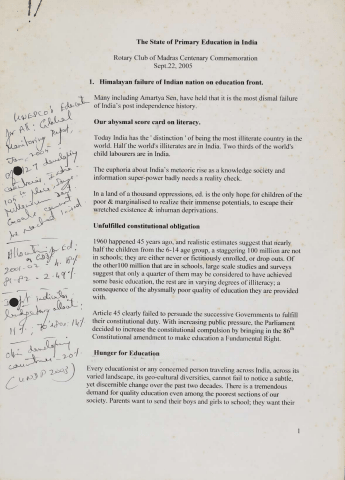 The State of Primary Education in India
Rotary Club of Madras Centenary Commemoration
Sept.22, 2005
1. Himalayan failure of Indian nation on education front.
Many including Amartya Sen, have held that it is the most dismal failure
of India's post independence history.
Our abysmal score card on literacy.
Today India has the 'distinction' of being the most illiterate country in the
world. Half the world's illiterates are in India. Two thirds of the world's
child labourers are in India.
The euphoria about India's meteoric rise as a knowledge society and
information super-power badly needs a reality check.
In a land of a thousand oppressions, ed. is the only hope for children of the
poor & marginalised to realize their immense potentials, to escape their
wretched existence & inhuman deprivations.
Unfulfilled constitutional obligation
1960 happened 45 years ago, and realistic estimates suggest that nearly
half the children from the 6-14 age group, a staggering 100 million are not
in schools; they are either never or fictitiously enrolled, or drop outs. Of
the other100 million that are in schools, large scale studies and surveys
suggest that only a quarter of them may be considered to have achieved
some basic education, the rest are in varying degrees of illiteracy; a
consequence of the abysmally poor quality of education they are provided
with.
Article 45 clearly failed to persuade the successive Governments to fulfill
their constitutional duty. With increasing public pressure, the Parliament
decided to increase the constitutional compulsion by bringing in the 86th
Constitutional amendment to make education a Fundamental Right.
Hunger for Education
Every educationist or any concerned person traveling across India, across its
varied landscape, its geo-cultural diversities, cannot fail to notice a subtle,
yet discernible change over the past two decades. There is a tremendous
demand for quality education even among the poorest sections of our
society. Parents want to send their boys and girls to school; they want their
1
UNESCO's Education
for All: Global
Monitoring Report
127 developing
countries India